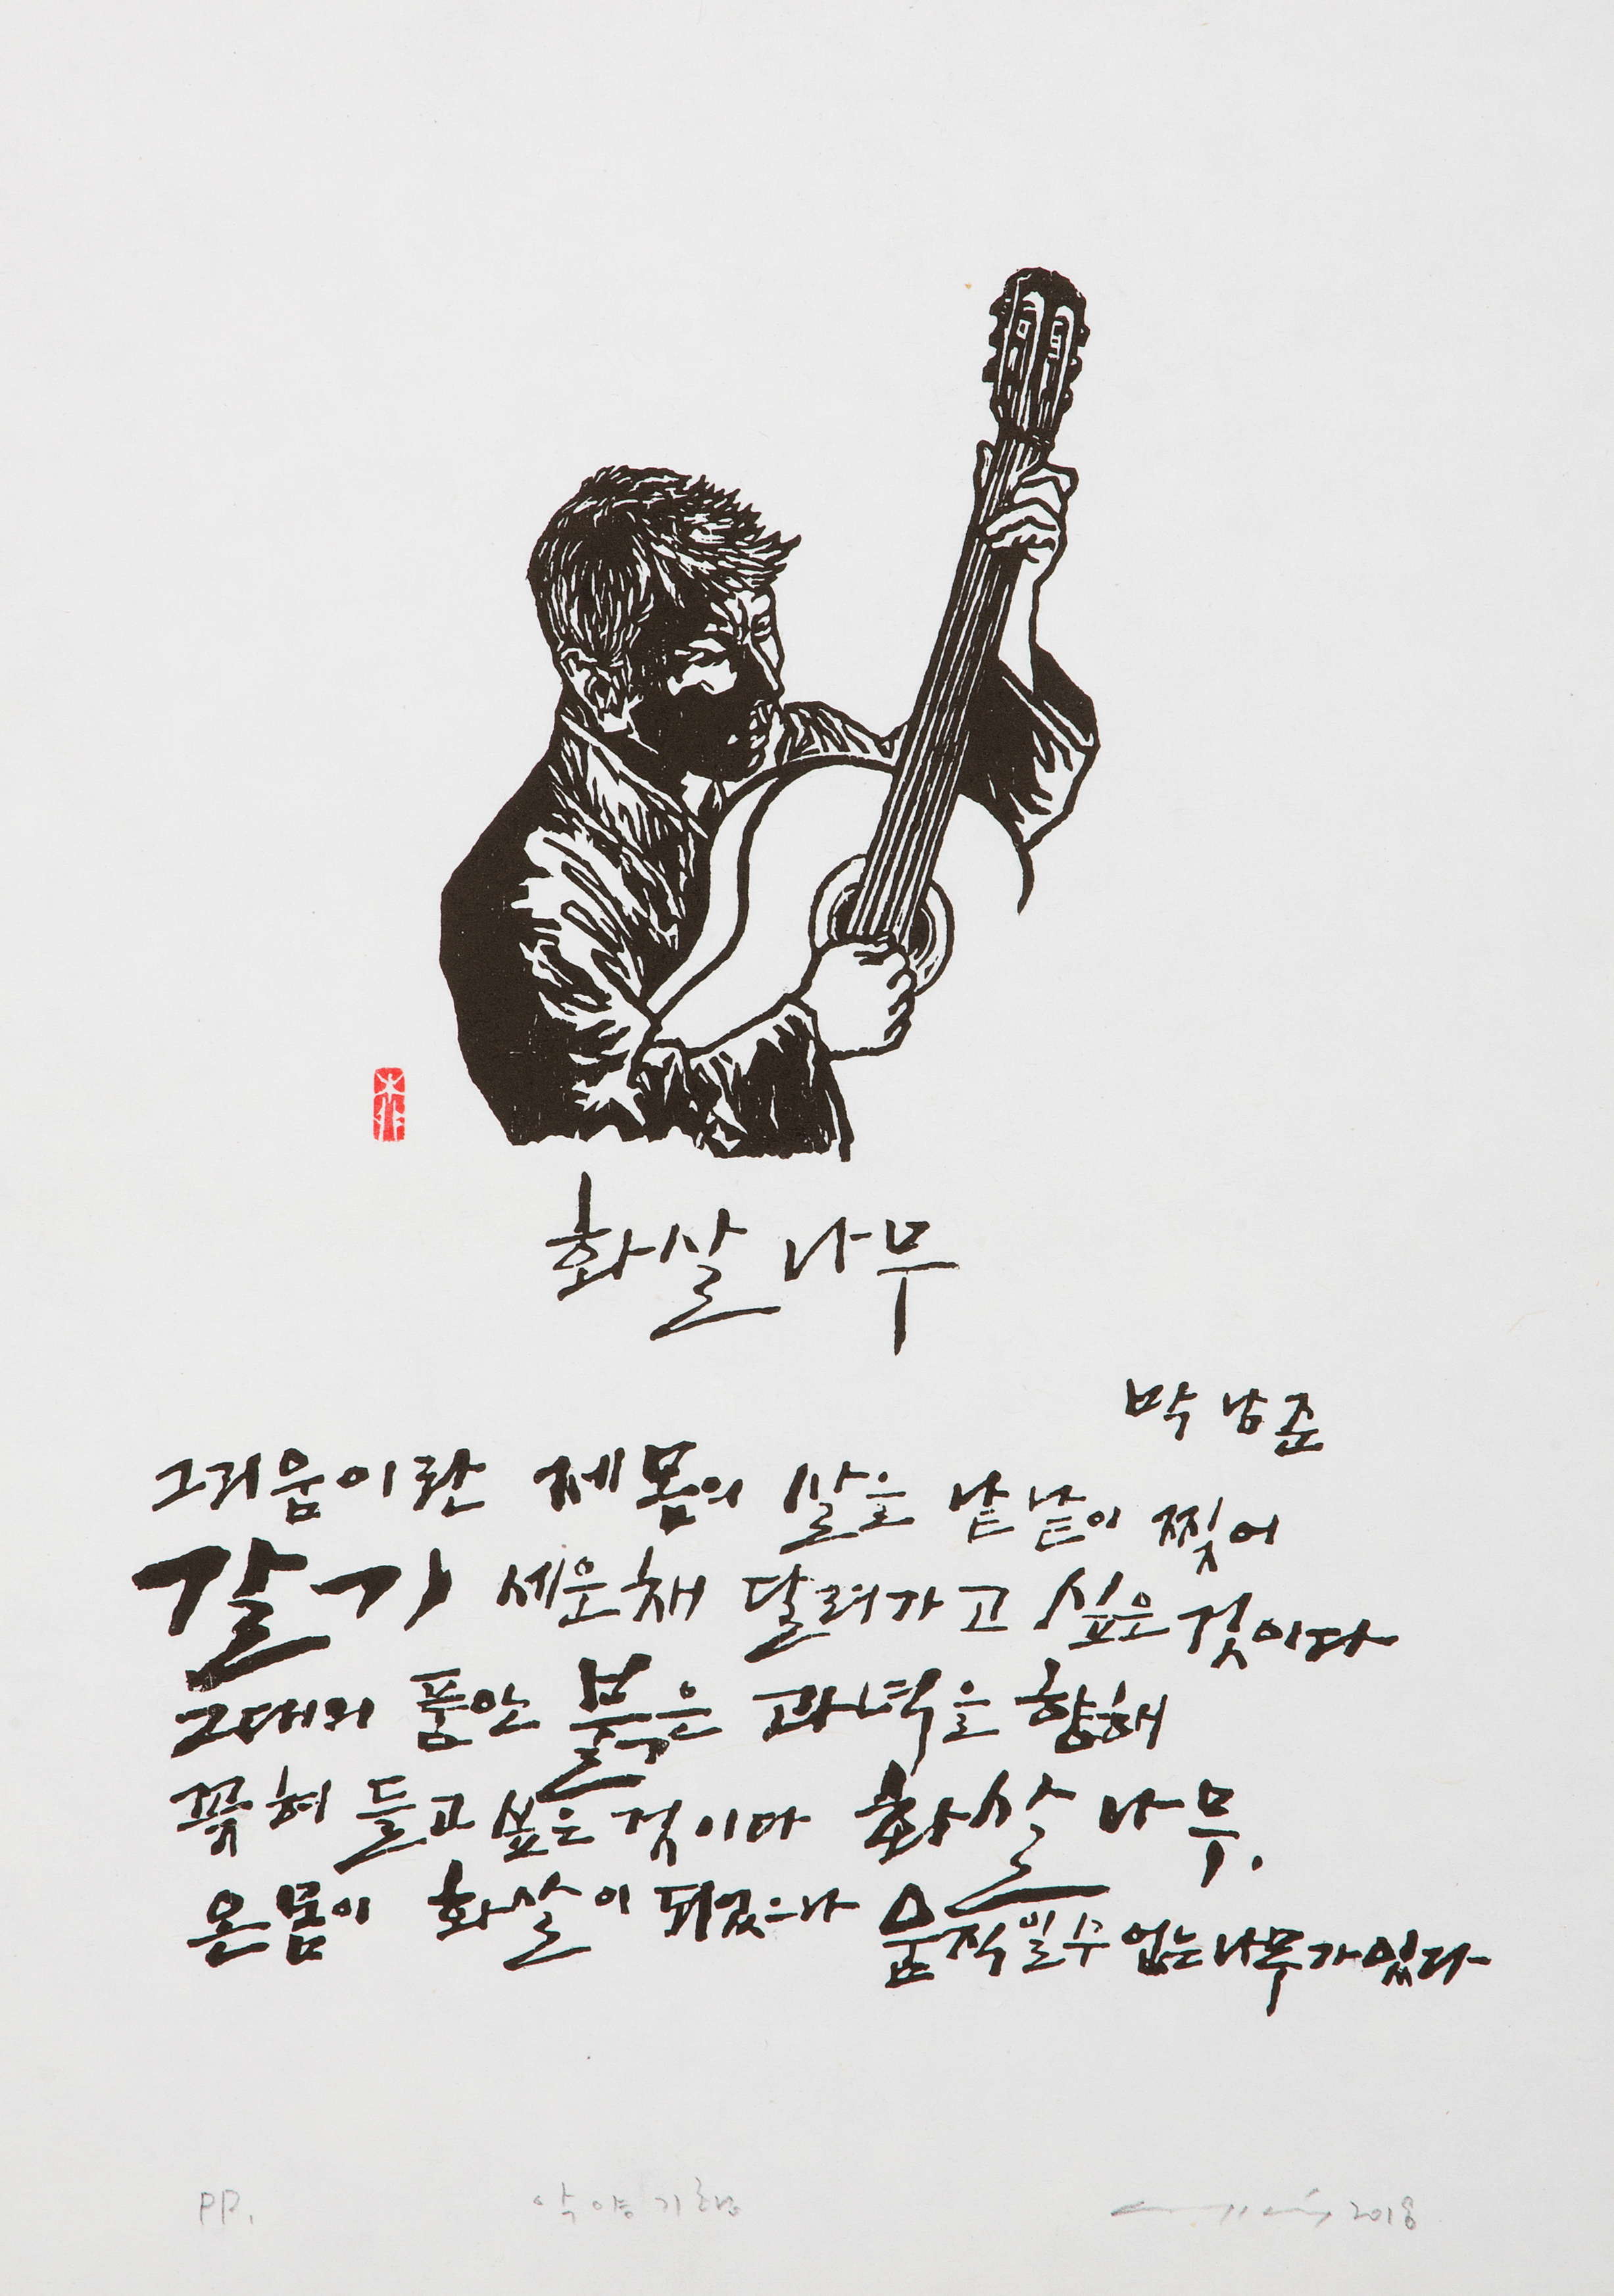 화살나무
박남준
그리움이란 제 몸의 살을 낱낱이 찢어
갈기 세운 채 달려가고 싶은 것이다
그대의 품 안 붉은 과녁을 향해
꽂혀 들고 싶은 것이다 화살나무.
온몸이 화살이 되었으나 움직일 수 없는 나무가 있다
PP.
악양기행
2018